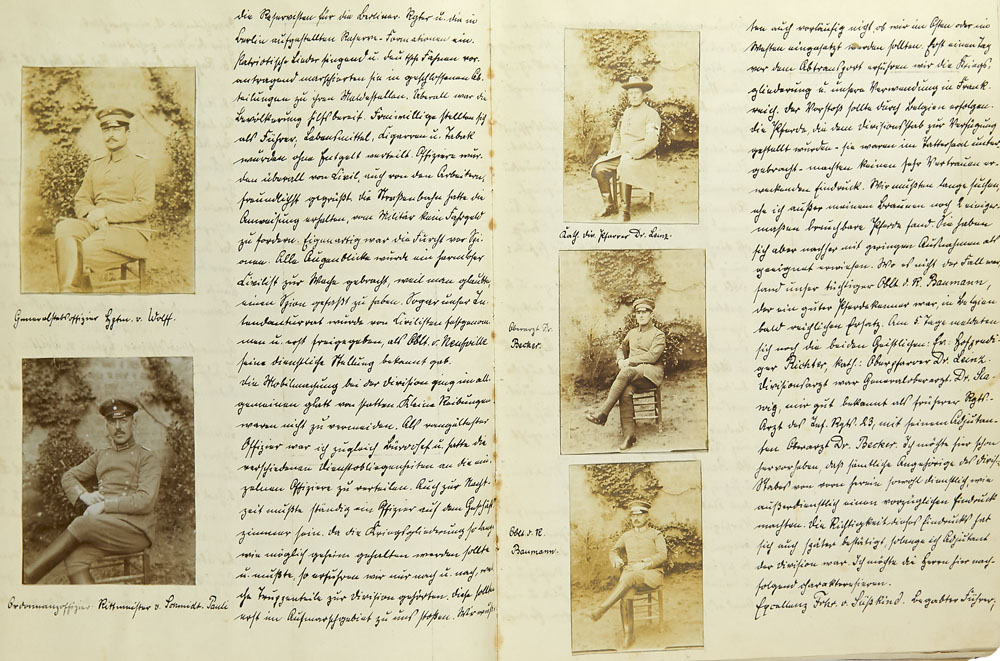 die Reservisten für die Berliner Rgter u. die in
Berlin aufgestellten Reserve-Formationen ein.
Patriotische Lieder singend u. deutsche Fahnen vor-
antragend marschierten sie in geschlossenen Ab-
teilungen zu ihren Meldestellen. Überall war die
Bevölkerung hilfsbereit. Freiwillige stellten sich
als Führer, Lebensmittel, Cigarren u. Tabak
wurden ohne Entgelt verteilt. Offiziere wur-
den überall von Civil, auch von den Arbeitern,
freundlichst gegrüßt, die Straßenbahn hatte die
Anweisung erhalten, vom Militär kein Fahrgeld
zu fordern. Eigenartig war die Furcht vor Spi-
onen. Alle Augenblicke wurde ein harmloser
Civilist zur Wache gebracht, weil man glaubte
einen Spion gefaßt zu haben. Sogar unser In-
tendanturrat wurde von Civilisten festgenom-
men u. erst freigegeben, als Oblt. v. Neufville
seine dienstliche Stellung bekannt gab.
Die Mobilmachung bei der Division ging im all-
gemeinen glatt von statten. Kleine Reibungen
waren nicht zu vermeiden. Als rangältester
Offizier war ich zugleich Bürochef u. hatte die
verschiedenen Dienstobliegenheiten an die ein-
zelnen Offiziere zu verteilen. Auch zur Nacht-
zeit mußte ständig ein Offizier auf dem Geschäfts-
zimmer sein. Da die Kriegsgliederung so lange
wie möglich geheim gehalten werden sollte
u. mußte, so erfuhren wir nur nach u. nach, wel-
che Truppenteile zur Division gehörten. Diese sollten
erst im Aufmarschgebiet zu uns stoßen. Wir wuß-
Generalstabsoffizier Hptm. v. Wolff.
Ordonnanzoffizier Rittmeister v. Schmidt-Pauli
ten auch vorläufig nicht, ob wir im Osten oder im
Westen eingesetzt werden sollten. Erst einen Tag
vor dem Abtransport erfuhren wir die Kriegs-
gliederung u. unsere Verwendung in Frank-
reich. Der Vorstoß sollte durch Belgien erfolgen.
Die Pferde, die dem Divisionsstab zur Verfügung
gestellt wurden - sie waren im Tattersall unter-
gebracht - machten keinen sehr Vertrauen er-
weckenden Eindruck. Wir mußten lange suchen,
ehe ich außer meinem Braunen noch 2 einiger-
maßen brauchbare Pferde fand. Sie haben
sich aber nachher mit geringen Ausnahmen als
geeignet erwiesen. Wo es nicht der Fall war,
fand unser tüchtiger Oblt. d. R. Baumann,
der ein guter Pferdekenner war, in Belgien
bald reichlichen Ersatz. Am 5. Tage meldeten
sich noch die beiden Geistlichen: Ev. Hofpredi-
ger Richter, kath: Oberpfarrer Dr. Leinz.
Divisionsarzt war Generaloberarzt Dr. Sla-
wig, mir gut bekannt als früherer Rgts-
Arzt des Inf. Rgts. 23, mit seinem Adjutan-
ten Oberarzt Dr. Becker. Ich möchte hier schon
hervorheben, daß sämtliche Angehörige des Divis.
Stabes von vorn herein sowohl dienstlich, wie
außerdienstlich einen vorzüglichen Eindruck
machten. Die Richtigkeit dieses Eindrucks hat
sich auch später bestätigt, solange ich Adjutant
der Division war. Ich möchte die Herren hier nach-
folgend charakterisieren.
Excellenz Frhr. v. Süßkind. Begabter Führer,
Kath. Div. Pfarrer Dr. Leinz.
Oberarzt Dr.
Becker.
Oblt. d. R.
Baumann.